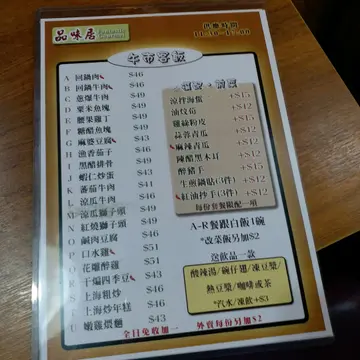 品味居
供應時間
11:30-17:00
午市客飯
A 回鍋肉 $46
B 回鍋牛肉 $49
C 蔥爆牛肉 $49
D 粟米魚塊 $49
E 腰果雞丁 $49
F 糖醋魚塊 $49
G 麻婆豆腐 $43
H 魚香茄子 $46
I 黑醋排骨 $49
J 蝦仁炒蛋 $43
K 蕃茄牛肉 $46
L 涼瓜牛肉 $46
M 涼瓜獅子頭 $49
N 紅燒獅子頭 $49
O 鹹肉豆腐 $46
P 口水雞 $51
Q 花雕醉雞 $51
R 干煸四季豆 $43
S 上海粗炒 $46
T 上海炒年糕 $46
U 嫩雞煨麵 $43
涼拌海蜇 +$15
油炆筍 +$12
雞絲粉皮 +$15
蒜蓉青瓜 +$12
麻辣青瓜 +$12
陳醋黑木耳 +$12
醉豬手 +$15
牛煎鍋貼(3件) +$12
紅油抄手(3件) +$12
每份套餐限配一項
A-R餐跟白飯1碗
*改菜飯另加$2
送飲品一款
酸辣湯/碗仔翅/凍豆漿/
熱豆漿/咖啡或茶
*汽水/凍飲+$3
全日免收加一
外賣每份另加$2